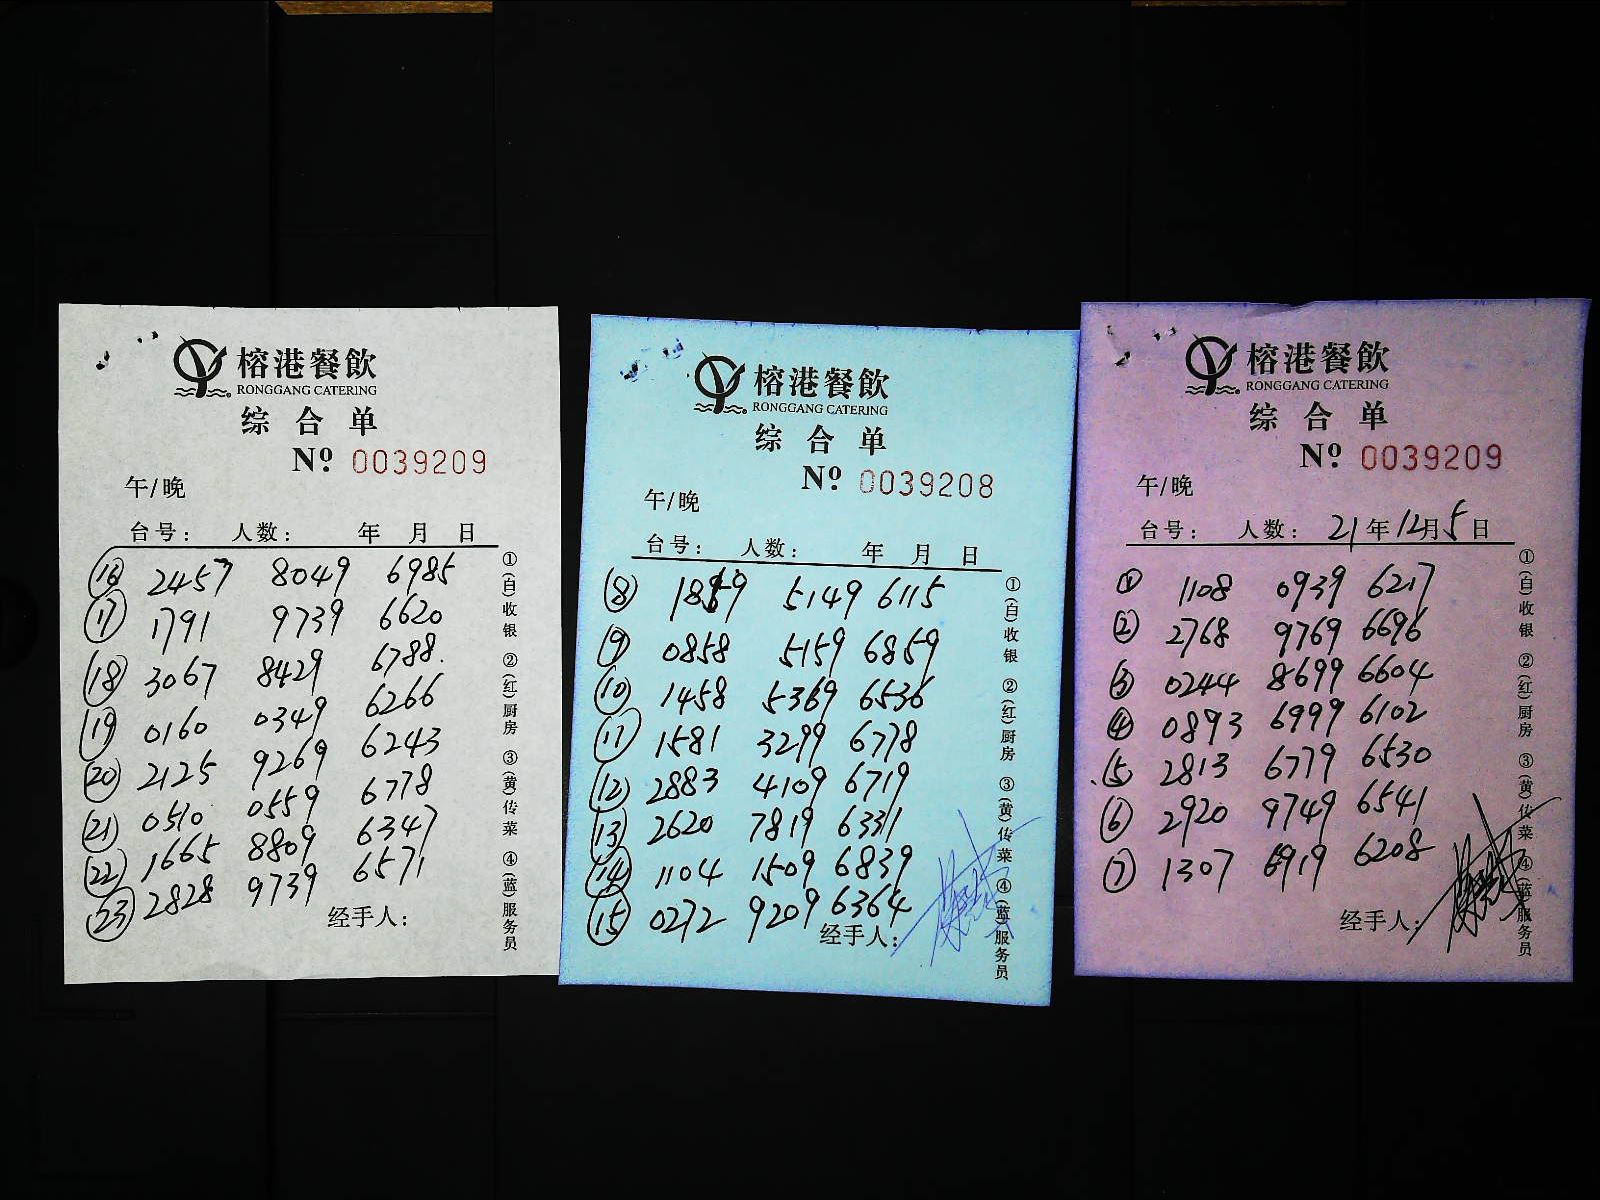 榕港餐飲
RONGGANG CATERING
综合单
Nº 0039209
午/晚
台号： 人数： 年 月 日
⑯ 2457 8049 6985
⑰ 1791 9739 6620
⑱ 3067 8429 6788.
⑲ 0160 0349 6266
⑳ 2125 9269 6243
㉑ 0510 0559 6778
㉒ 1665 8809 6347
㉓ 2828 9739 6571
经手人：
①(白)收银 ②(红)厨房 ③(黄)传菜 ④(蓝)服务员
榕港餐飲
RONGGANG CATERING
综合单
Nº 0039208
午/晚
台号： 人数： 年 月 日
⑧ 1869 5149 6115
⑨ 0858 5159 6859
⑩ 1458 5369 6536
⑪ 1581 3299 6778
⑫ 2883 4109 6719
⑬ 2620 7819 6331
⑭ 1104 1509 6839
⑮ 0272 9209 6364
经手人：
①(白)收银 ②(红)厨房 ③(黄)传菜 ④(蓝)服务员
榕港餐飲
RONGGANG CATERING
综合单
Nº 0039209
午/晚
台号： 人数： 21年12月5日
① 1108 0939 6217
② 2768 9769 6696
③ 0244 8699 6604
④ 0893 6999 6102
⑤ 2813 6779 6530
⑥ 2920 9749 6541
⑦ 1307 6919 6208
经手人：
①(白)收银 ②(红)厨房 ③(黄)传菜 ④(蓝)服务员